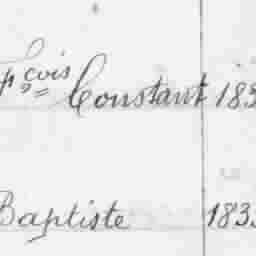 çois Constant 183
Baptiste 183